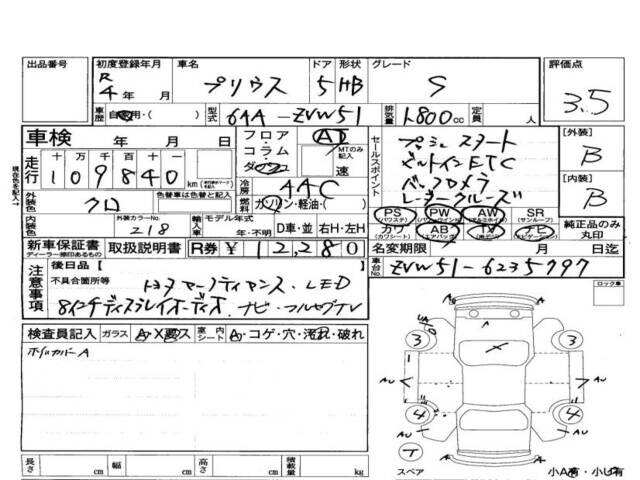 出品番号 初度登録年月 車名 ドア 形状 グレード 評価点
R 4年 月 プリウス 5 HB S 3.5
車歴 自家用・( ) 型式 6AA-ZVW51 排気量 1800cc 定員 人
車検 年 月 日 フロア AT セールスポイント プッシュスタート [外装]
走行 十 万 千 百 十 一 コラム MTのみ記入 ビルトインETC B
109840 km ダッシュ 速 バックカメラ [内装]
現在色を記入 外装色 クロ 色替車は色替と記入 冷房 AAC レーダークルーズ B
燃料 ガソリン・軽油・( ) PS (パワステ) PW (パワーウィンド) AW (アルミホイル) SR (サンルーフ)
内装色 外装カラーNo. 218 輸入車 モデル年式 年・不明 D車・並 右H・左H カワ (カワシート) AB (エアバッグ) TV ナビ (ナビゲーション) 純正品のみ丸印
新車保証書 ディーラー捺印あるもの 取扱説明書 R券 ¥12,280 名変期限 月 日迄
注意事項 後日品 [ ] 車台No. ZVW51-6235797
不具合箇所等 トヨタセーフティセンス・LED ロック車
8インチディスプレイオーディオ・ナビ・フルセグTV
検査員記入 ガラス A・X要ス 室内シート A・コゲ・穴・汚れ・破れ
ホイルカバーA
A A
3 3
AU AU
4 4
T
スペア 小A有・小U有
長さ cm 幅 cm 高さ cm 積載量 kg